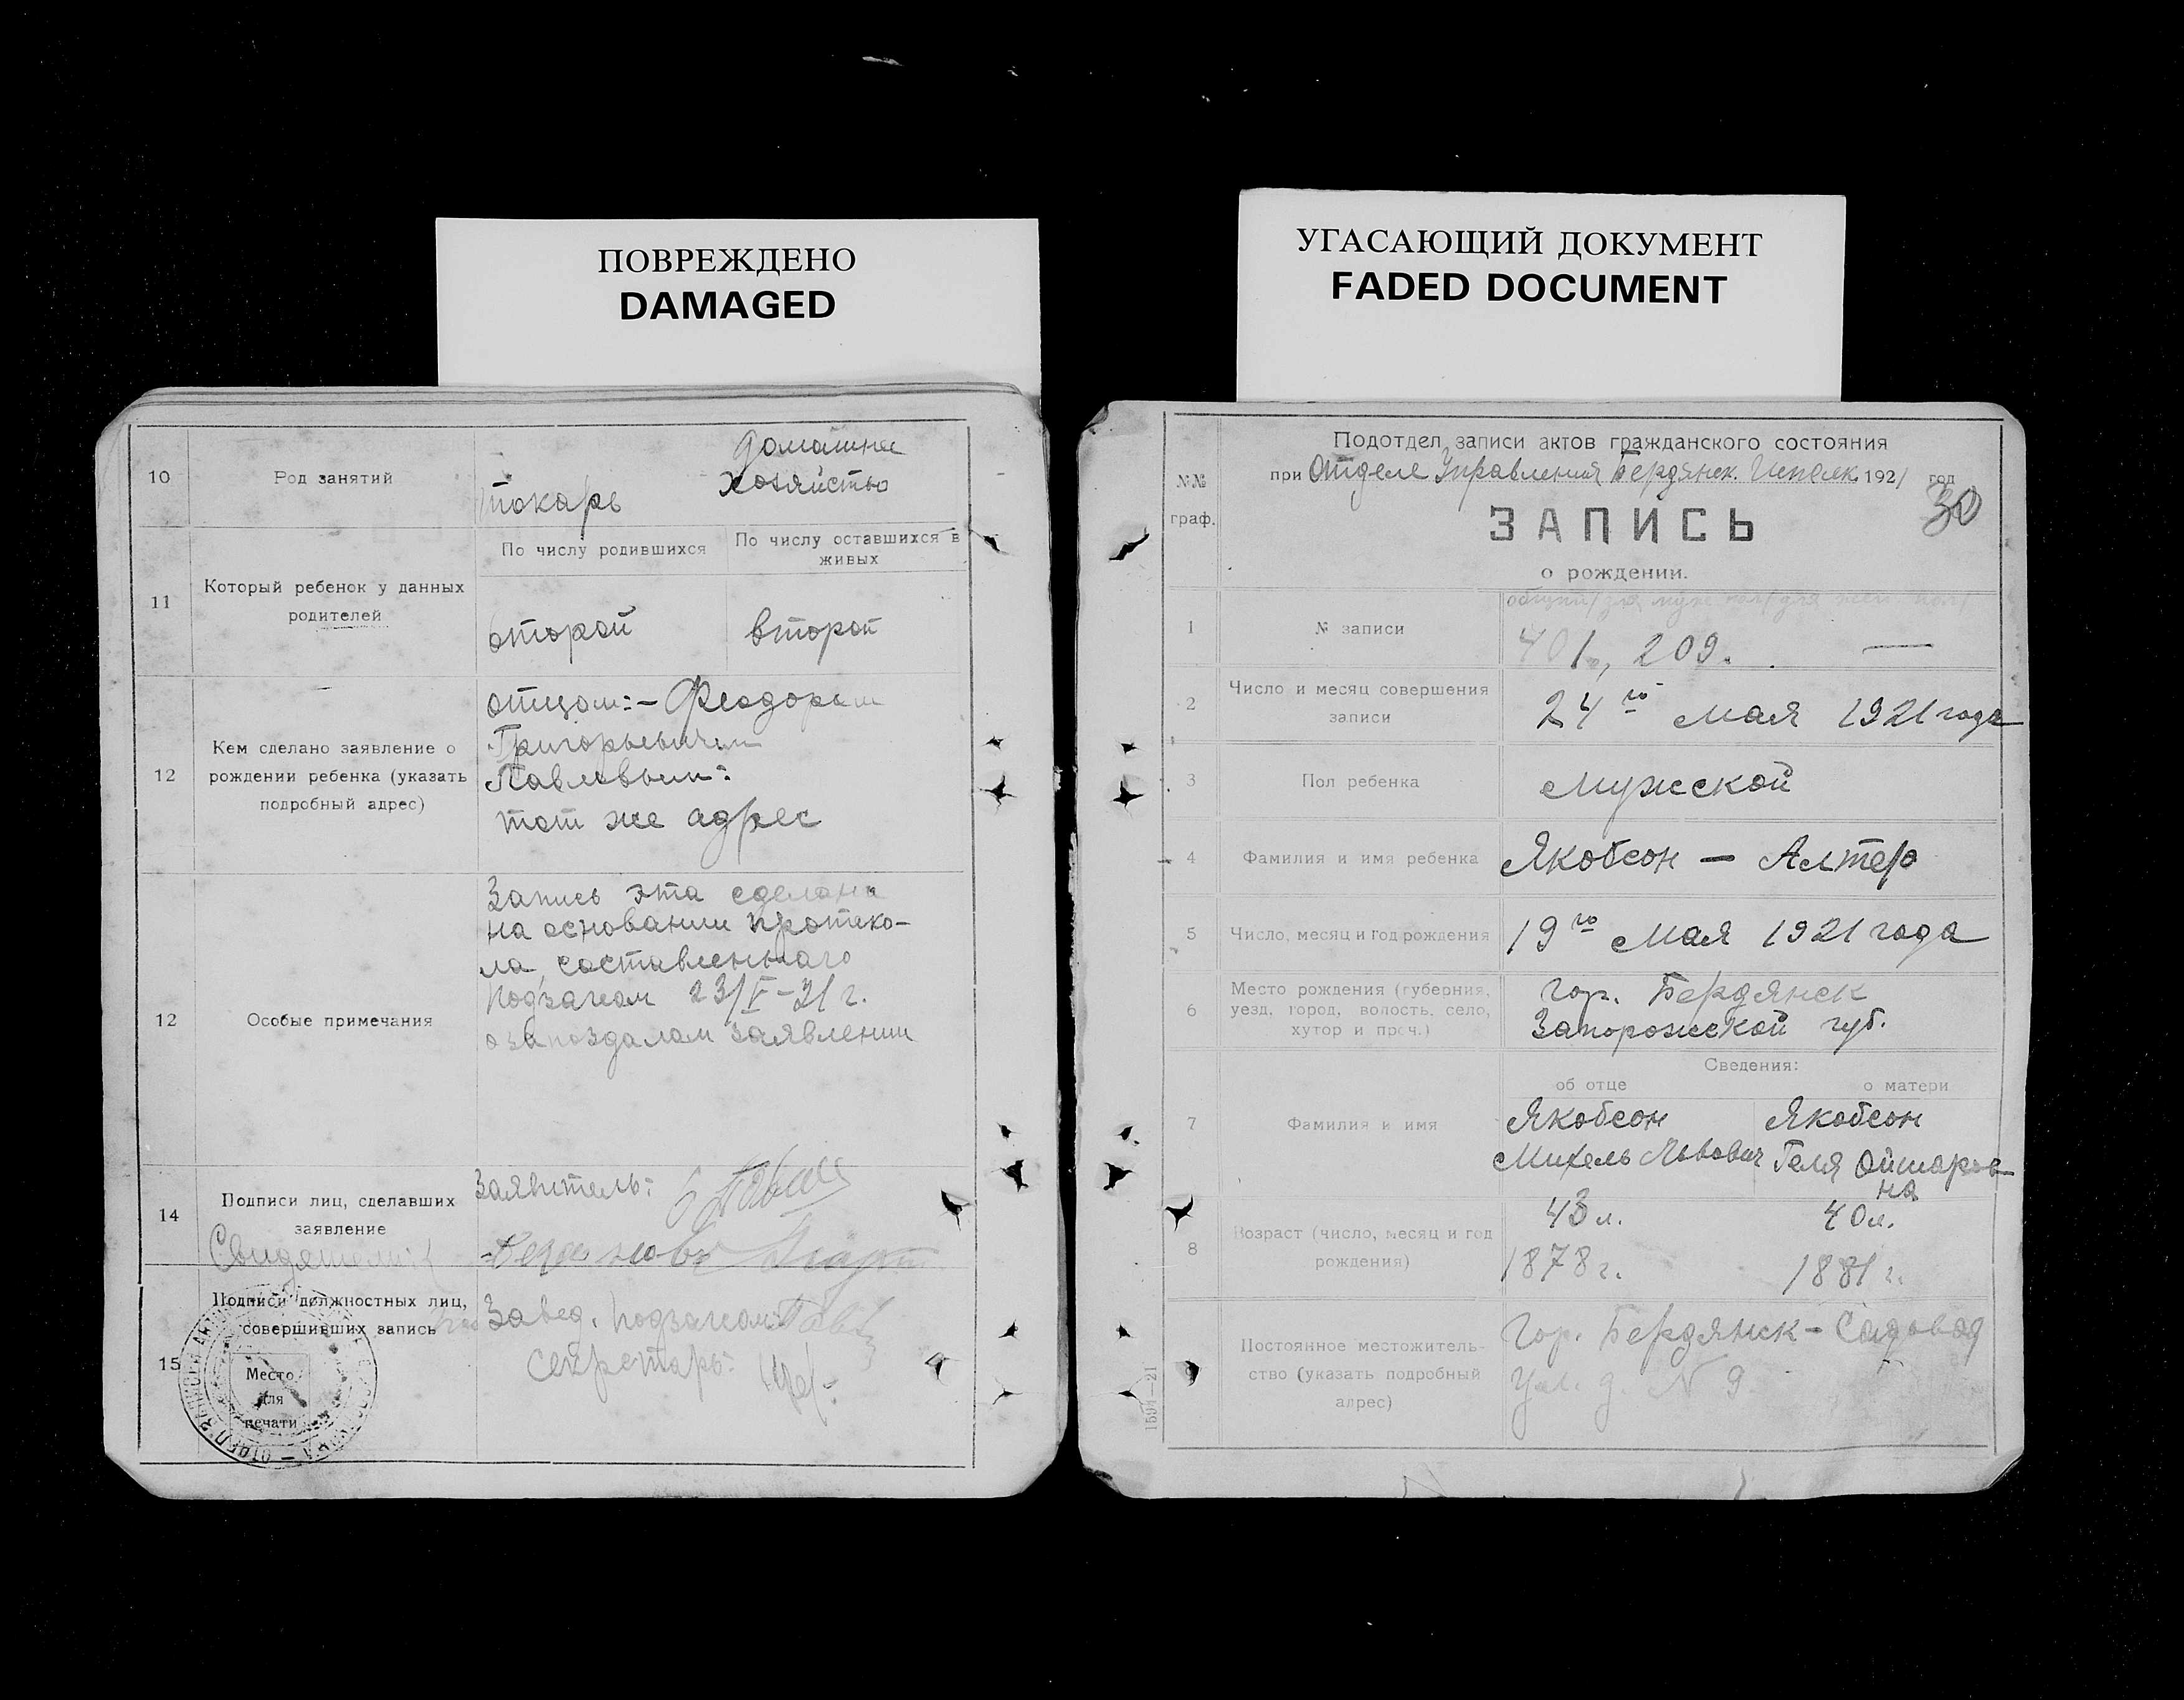 ПОВРЕЖДЕНО
DAMAGED
10
Род занятий
токарь
домашнее
хозяйство
11
Который ребенок у данных
родителей
По числу родившихся
По числу оставшихся в
живых
второй
второй
12
Кем сделано заявление о
рождении ребенка (указать
подробный адрес)
отцом:- Феодором
Григорьевичем
Павловым:
тот же адрес
12
Особые примечания
Запись эта сделана
на основании протоко-
ла, составленнаго
Подзагсом 23/V-21 г.
о запоздалом заявлении
14
Подписи лиц, сделавших
заявление
Свидетели:
Заявитель:
15
Подписи должностных лиц,
совершивших запись
Место
для
печати
Завед. подзагсом
Секретарь:
УГАСАЮЩИЙ ДОКУМЕНТ
FADED DOCUMENT
№№
граф.
Подотдел записи актов гражданского состояния
при Отделе Управления Бердянск. Исполк. 1921 год
30
ЗАПИСЬ
о рождении.
1
№ записи
общий/для муж пол/для жен пол/
401, 209. —
2
Число и месяц совершения
записи
24го мая 1921 года
3
Пол ребенка
Мужской
4
Фамилия и имя ребенка
Якобсон — Алтер
5
Число, месяц и год рождения
19го Мая 1921 года
6
Место рождения (губерния,
уезд, город, волость, село,
хутор и проч.)
гор. Бердянск
Запорожской губ.
Сведения:
об отце
о матери
7
Фамилия и имя
Якобсон
Михель Львович
Якобсон
Геля
8
Возраст (число, месяц и год
рождения)
43 л.
1878 г.
40 л.
1881 г.
9
Постоянное местожитель-
ство (указать подробный
адрес)
Гор. Бердянск - Садовая
ул. д. № 9.
1594—21